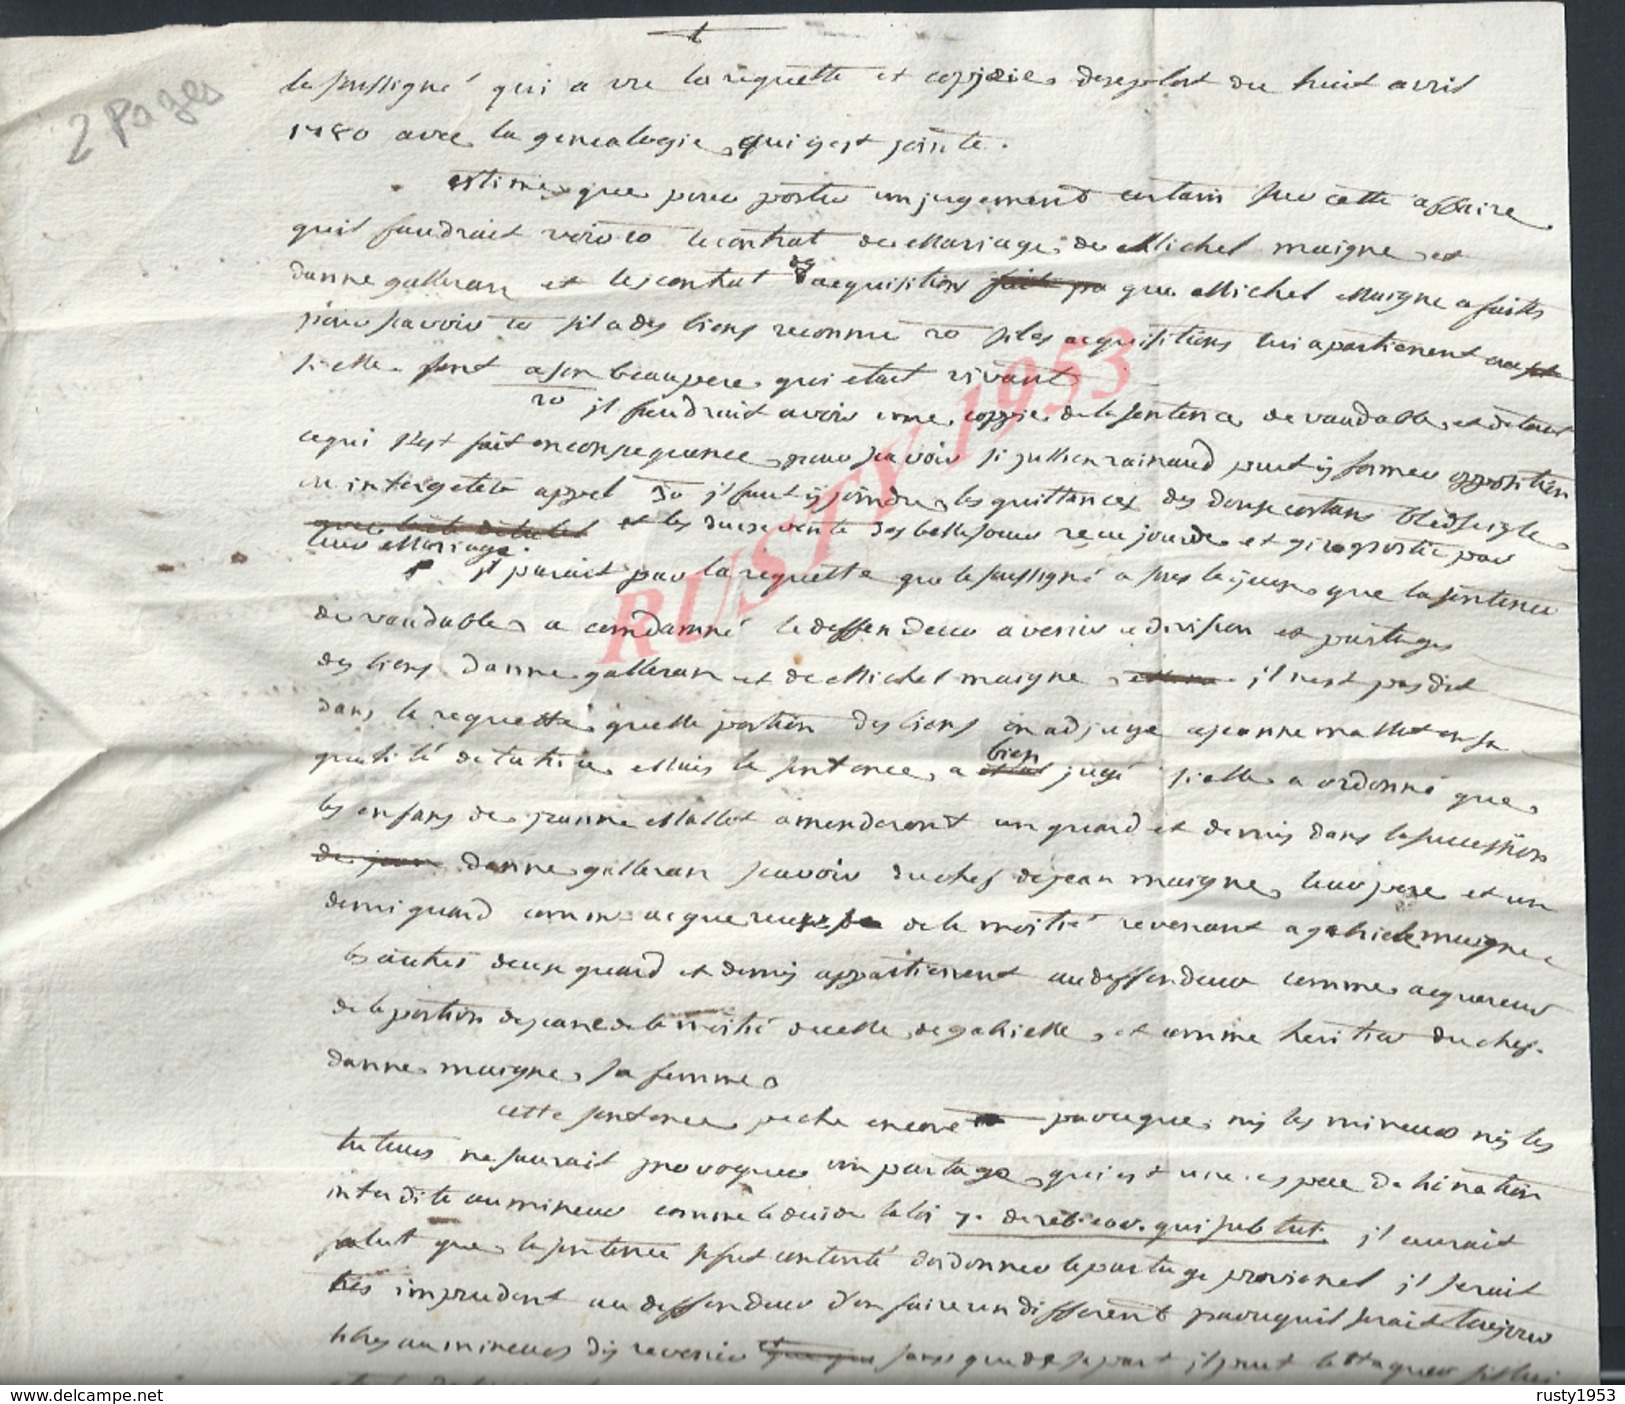 2 Pages
le soussigné qui a vu la requette et coppie d'exploit du huit avril
1780 avec la genealogie qui y est jointe.
estime que pour porter un jugement certain sur cette affaire
quil faudrait voir 10 le contrat de Mariage de Michel maigne et
danne galleran et les contrat d'acquisition que Michel Maigne a faits
pour scavoir si les acquisitions lui apartienent
si elle sont a son beaupere qui etait vivant
20 il faudrait avoir une coppie de la sentence de vaudable et de tout
cequi s'est fait en consequence pour scavoir si jullien rainaud peut y former opposition
ou interjeter appel 30 il faut y joindre les quittances des
et les
leur Mariage.
il parait par la requette que le soussigné a sous les yeux que la sentence
de vaudable a condamné le deffendeur a venir a division et partage
des biens danne galleran et de Michel maigne il nest pas dit
dans la requette quelle portion des biens on adjuge a jeanne mallet en sa
qualité de tutrice Mais la sentence a bien jugé si elle a ordonné que
les enfans de jeanne Mallet amenderont un quard et demis dans la succession
danne galleran scavoir du chef de jean maigne leur pere et un
demi quard comme acquereur de la moitié revenant a gabrielle maigne
les autres deux quard et demis appartienent au deffendeur comme acquereur
de la portion de la moitié de celle de gabrielle et comme heritier du chef
danne maigne sa femme
cette sentence peche encore parceque ny les mineurs ny les
tuteurs ne saurait provoquer un partage qui est une espece dalienation
interdite au mineur comme le decide la loi 7. de reb. eor. qui sub tut. il aurait
falut que la sentence se fut contenté dordonner le partage provisionel il serait
tres imprudent au deffendeur d'en faire un different parcequil serait toujours
libre au mineurs dy revenir sans que de sa part il peut lattaquer
RUSTY 1953
delcampe.net
rusty1953